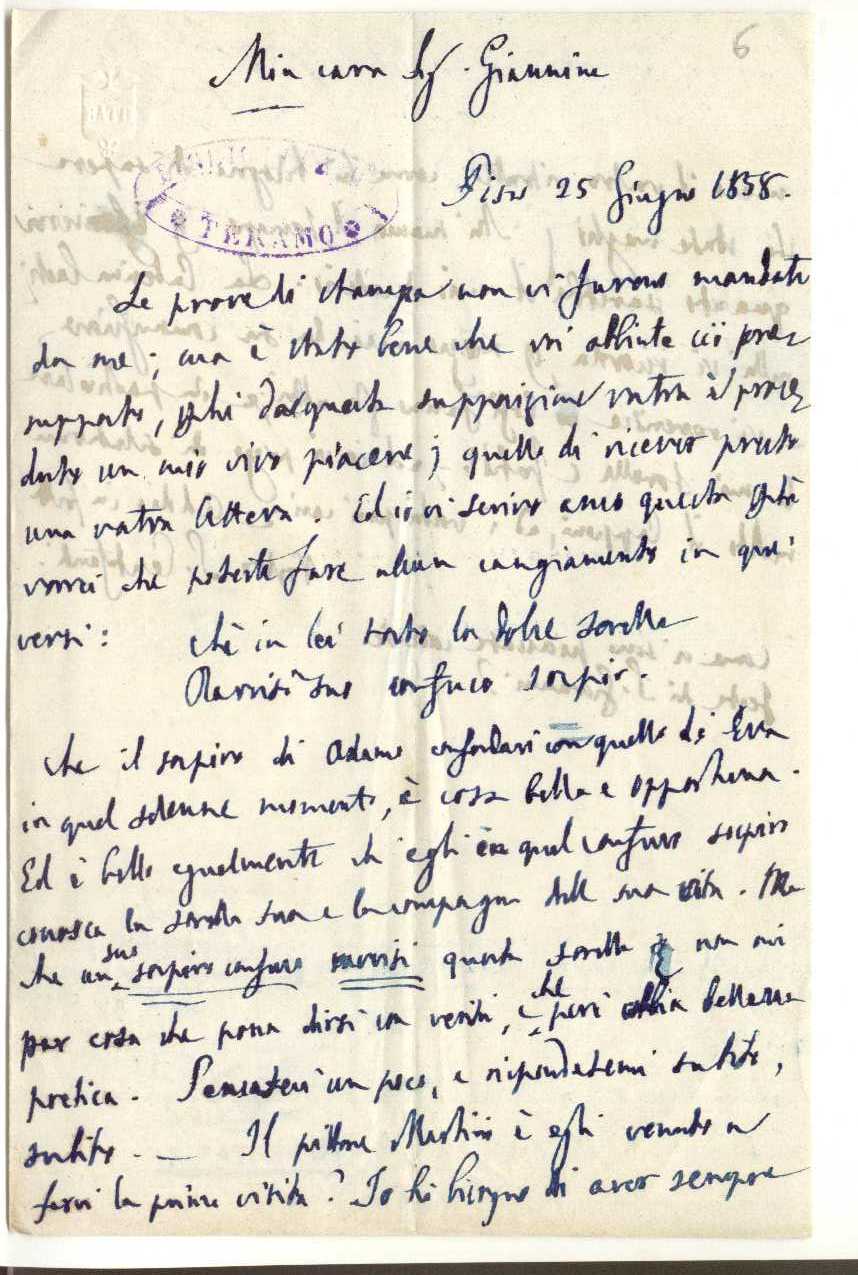 6
Mia cara Sig. Giannina
Pisa 25 Giugno 1858.
TERAMO
Le prove di stampa non vi furono mandate
da me; ma è stato bene che voi abbiate ciò pre=
supposto, chè da questa supposizione vostra è proce=
duto un mio vivo piacere; quello di ricever presto
una vostra lettera. Ed io vi scrivo anco questa chè
vorrei che poteste fare alcun cangiamento in que'
versi:
Chè in lei tosto la dolce sorella
Ravvisò suo confuso sospir.
Che il sospiro di Adamo confondasi con quello di Eva
in quel solenne momento, è cosa bella e opportuna.
Ed è bello egualmente ch'egli in quel confuso sospiro
conosca la sorella sua e la compagna della sua vita. Ma
che un suo sospiro confuso ravvisi questa sorella non mi
par cosa che possa dirsi con verità, e che però abbia bellezza
poetica. Pensateci un poco, e rispondetemi subito,
subito. — Il pittore è egli venuto a
farvi la prima visita? Io ho bisogno di aver sempre